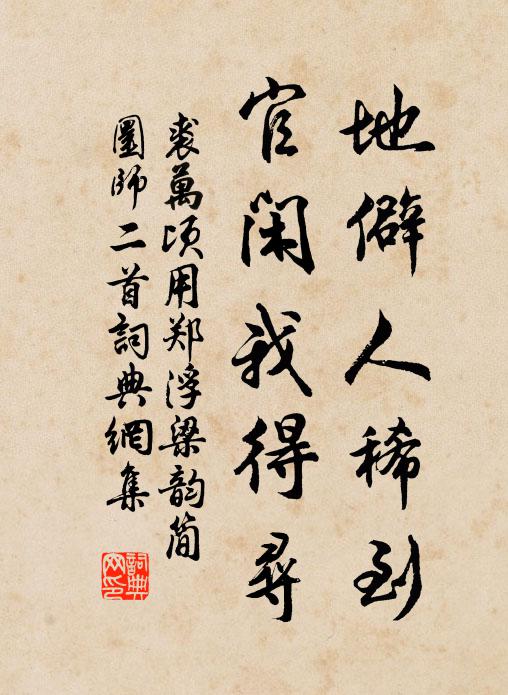 地僻人稀到
官闲我得尋
裘萬頃用郑浮梁韵简
圖師二首詞典網集
詞典
网印